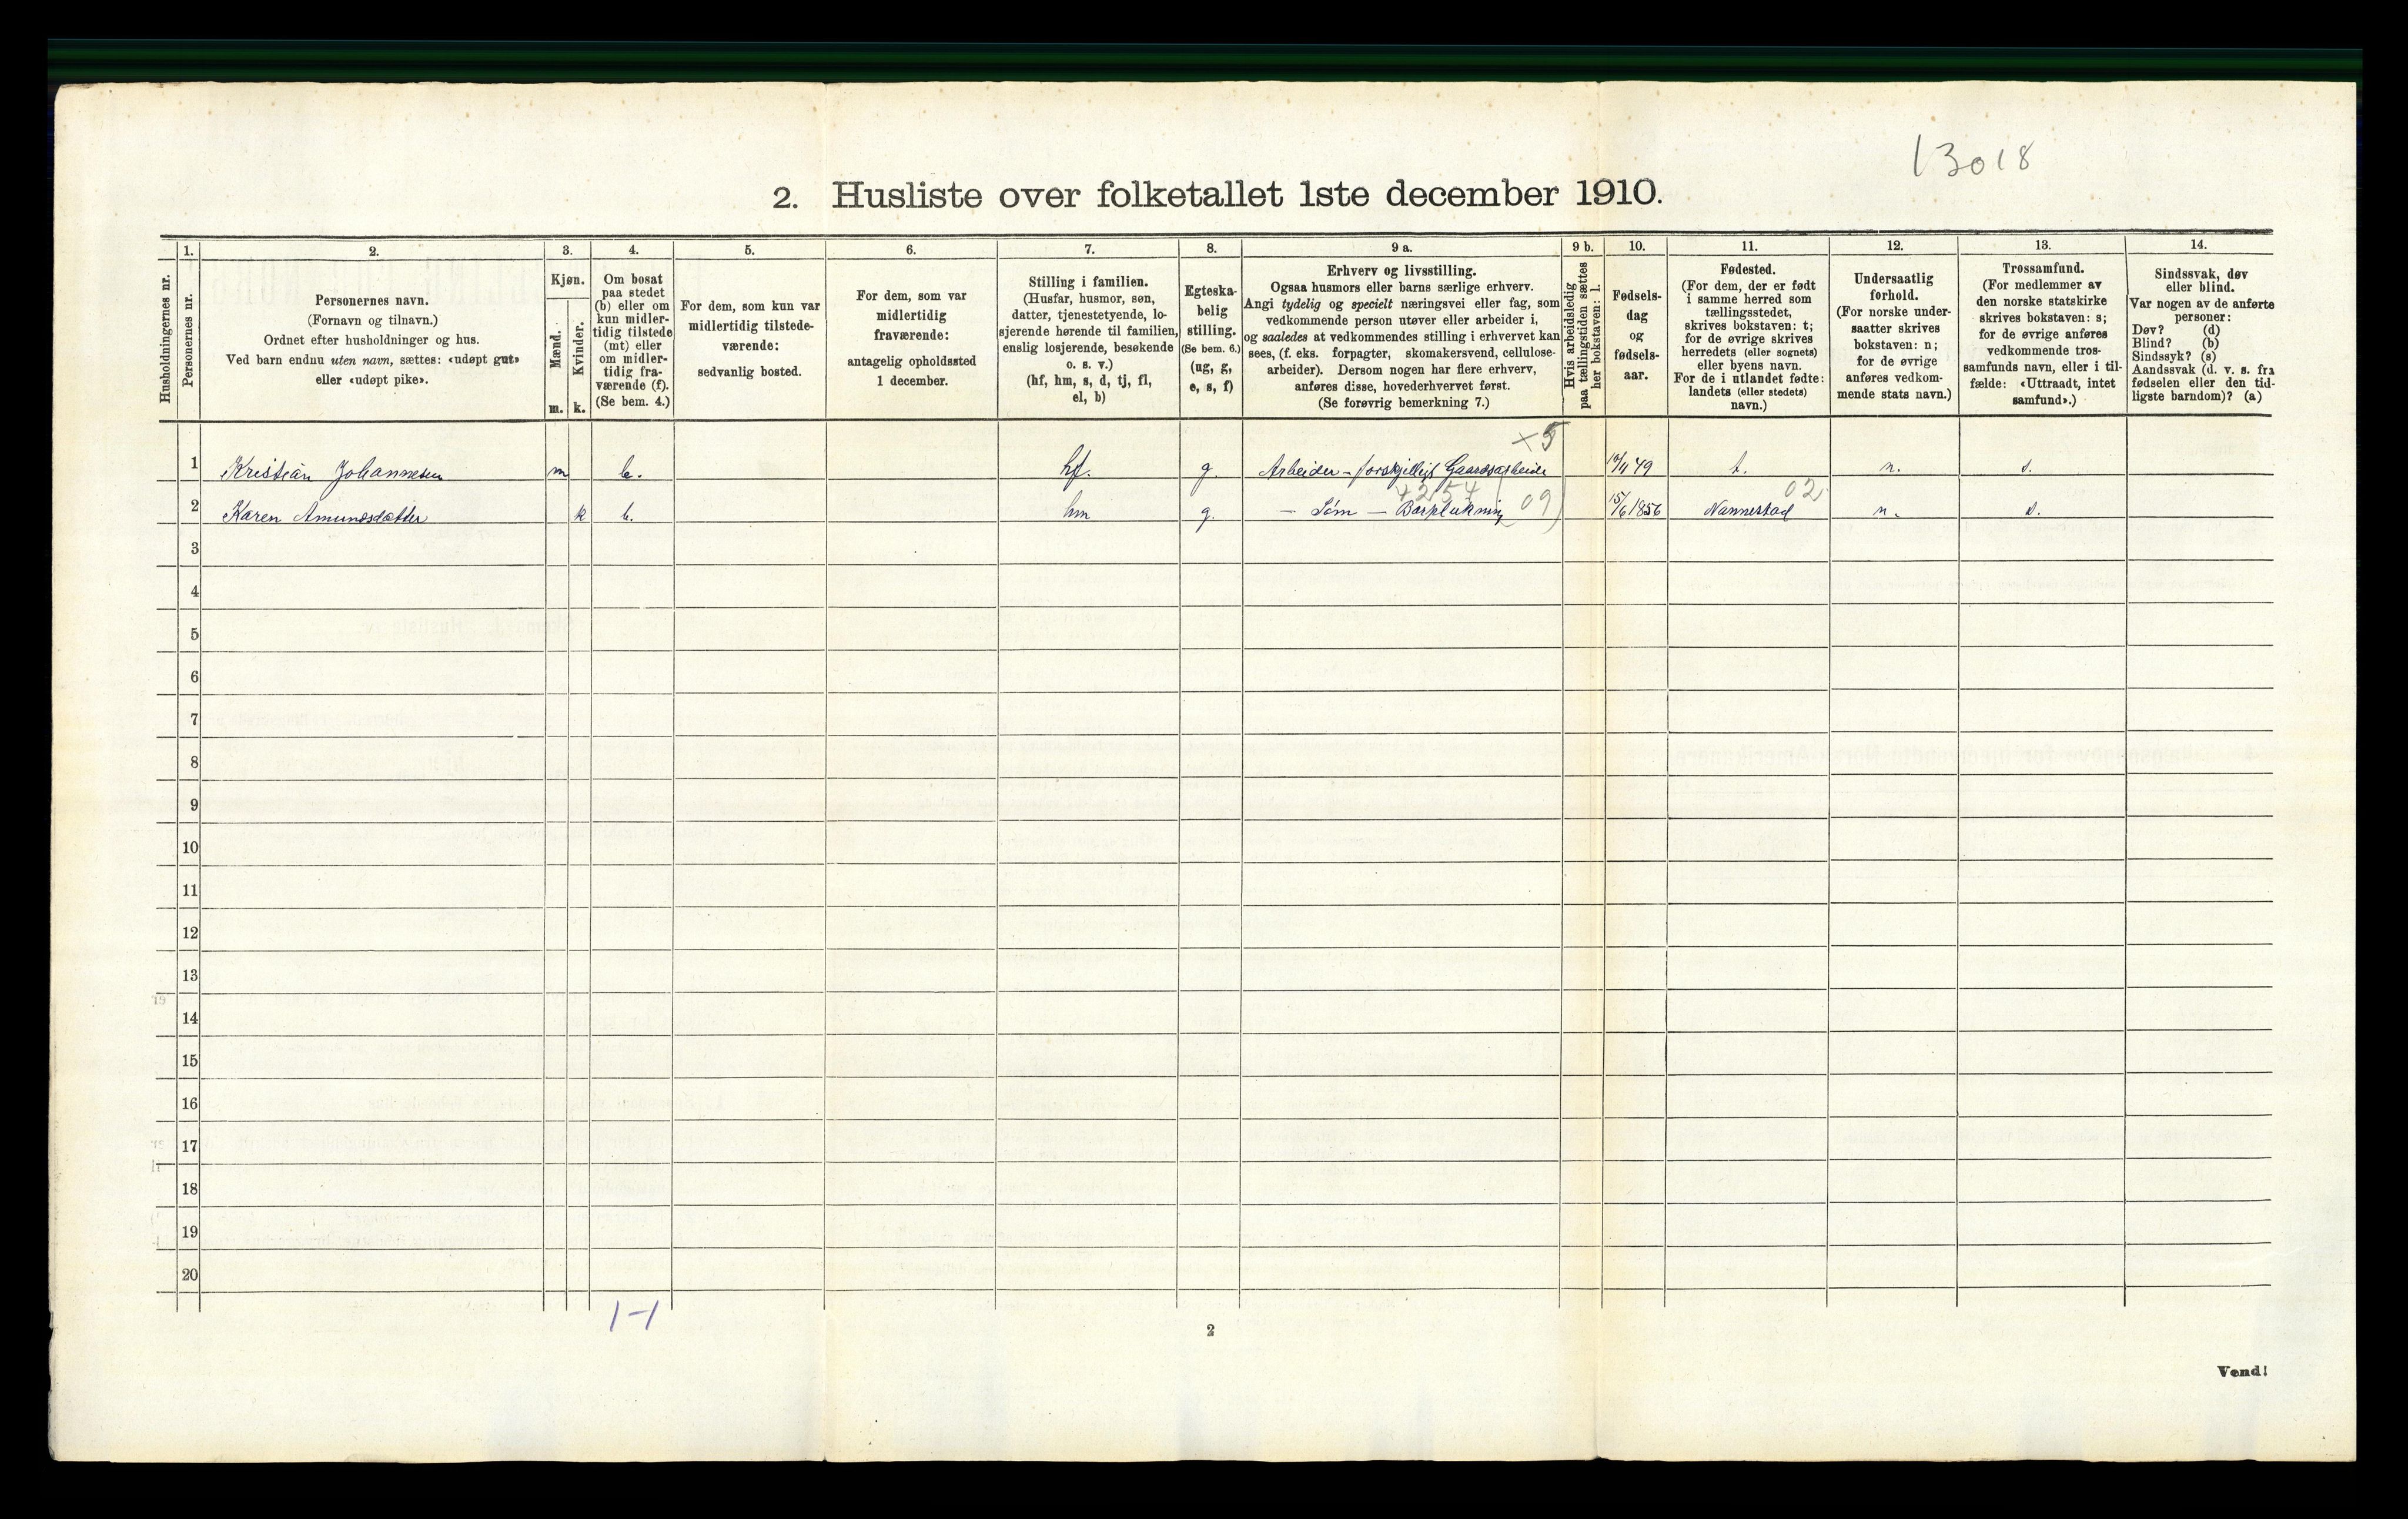 13018
2. Husliste over folketallet 1ste december 1910.
Husholdningernes nr.
1.
Personernes nr.
2.
Personernes navn.
(Fornavn og tilnavn.)
Ordnet efter husholdninger og hus.
Ved barn endnu uten navn, sættes: «udøpt gut»
eller «udøpt pike».
3.
Kjøn.
Mænd.
m.
Kvinder.
k.
4.
Om bosat
paa stedet
(b) eller om
kun midler-
tidig tilstede
(mt) eller
om midler-
tidig fra-
værende (f).
(Se bem. 4.)
5.
For dem, som kun var
midlertidig tilstede-
værende:
sedvanlig bosted.
6.
For dem, som var
midlertidig
fraværende:
antagelig opholdssted
1 december.
7.
Stilling i familien.
(Husfar, husmor, søn,
datter, tjenestetyende, lo-
sjerende hørende til familien,
enslig losjerende, besøkende
o. s. v.)
(hf, hm, s, d, tj, fl,
el, b)
8.
Egteska-
belig
stilling.
(Se bem. 6.)
(ug, g,
e, s, f)
9 a.
Erhverv og livsstilling.
Ogsaa husmors eller barns særlige erhverv.
Angi tydelig og specielt næringsvei eller fag, som
vedkommende person utøver eller arbeider i,
og saaledes at vedkommendes stilling i erhvervet kan
sees, (f. eks. forpagter, skomakersvend, cellulose-
arbeider). Dersom nogen har flere erhverv,
anføres disse, hovederhvervet først.
(Se forøvrig bemerkning 7.)
9 b.
Hvis arbeidsledig
paa tællingstiden sættes
her bokstaven: l.
10.
Fødsels-
dag
og
fødsels-
aar.
11.
Fødested.
(For dem, der er født
i samme herred som
tællingsstedet,
skrives bokstaven: t;
for de øvrige skrives
herredets (eller sognets)
eller byens navn.
For de i utlandet fødte:
landets (eller stedets)
navn.)
12.
Undersaatlig
forhold.
(For norske under-
saatter skrives
bokstaven: n;
for de øvrige
anføres vedkom-
mende stats navn.)
13.
Trossamfund.
(For medlemmer av
den norske statskirke
skrives bokstaven: s;
for de øvrige anføres
vedkommende tros-
samfunds navn, eller i til-
fælde: «Uttraadt, intet
samfund».)
14.
Sindssvak, døv
eller blind.
Var nogen av de anførte
personer:
Døv? (d)
Blind? (b)
Sindssyk? (s)
Aandssvak (d. v. s. fra
fødselen eller den tid-
ligste barndom)? (a)
×5
1 Kristian Johannesen m b. hf. g. Arbeider – forskjelligt Gaardsarbeide 49 t. n. s.
4254 02
2 Karen Amundsdatter k b. hm g. – Søm – Bærplukning 09 15/6 1856 Nannestad n. s.
3
4
5
6
7
8
9
10
11
12
13
14
15
16
17
18
19
20
1-1
2
Vend!